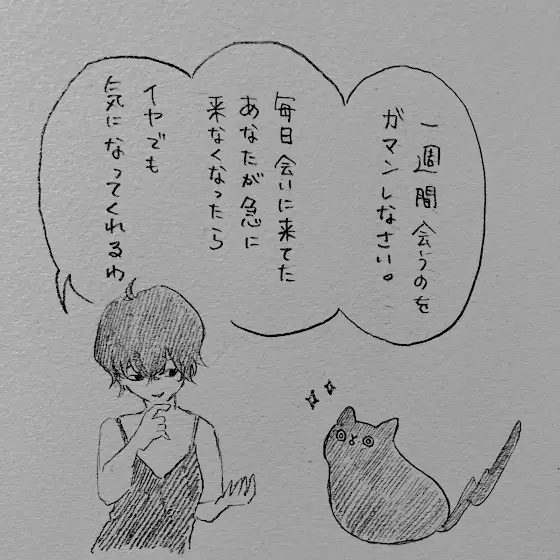 一週間会うのを
ガマンしなさい。
毎日会いに来てた
あなたが急に
来なくなったら
イヤでも
気になってくれるわ